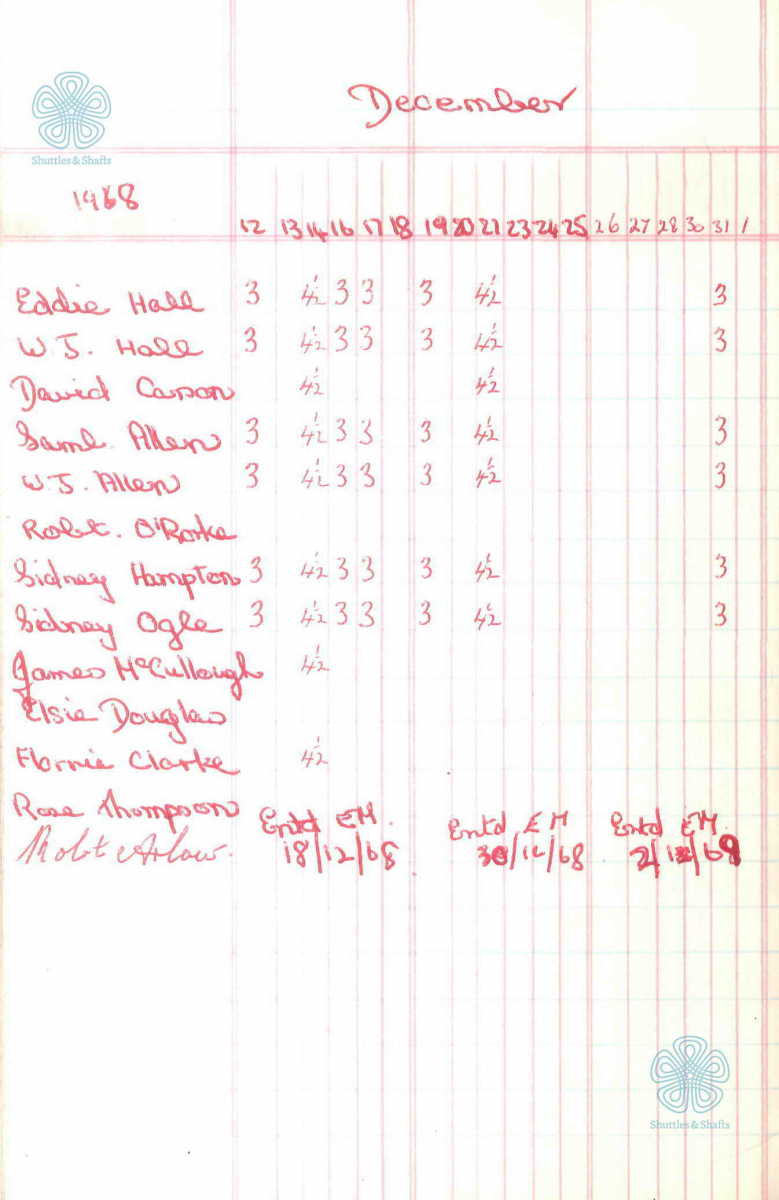 December
Shuttles & Shafts
1968
12 13 14 16 17 18 19 20 21 23 24 25 26 27 28 30 31 1
Eddie Hall 3 4½ 3 3 3 4½ 3
W.J. Hall 3 4½ 3 3 3 4½ 3
David Carson 4½ 4½
Saml. Allen 3 4½ 3 3 3 4½ 3
W.J. Allen 3 4½ 3 3 3 4½ 3
Robt. O'Rorke
Sidney Hampton 3 4½ 3 3 3 4½ 3
Sidney Ogle 3 4½ 3 3 3 4½ 3
James McCullough 4½
Elsie Douglas
Florrie Clarke 4½
Rose Thompson Entd EM. Entd EM Entd EM.
Robt 18/12/68 30/12/68 2/12/69
Shuttles & Shafts